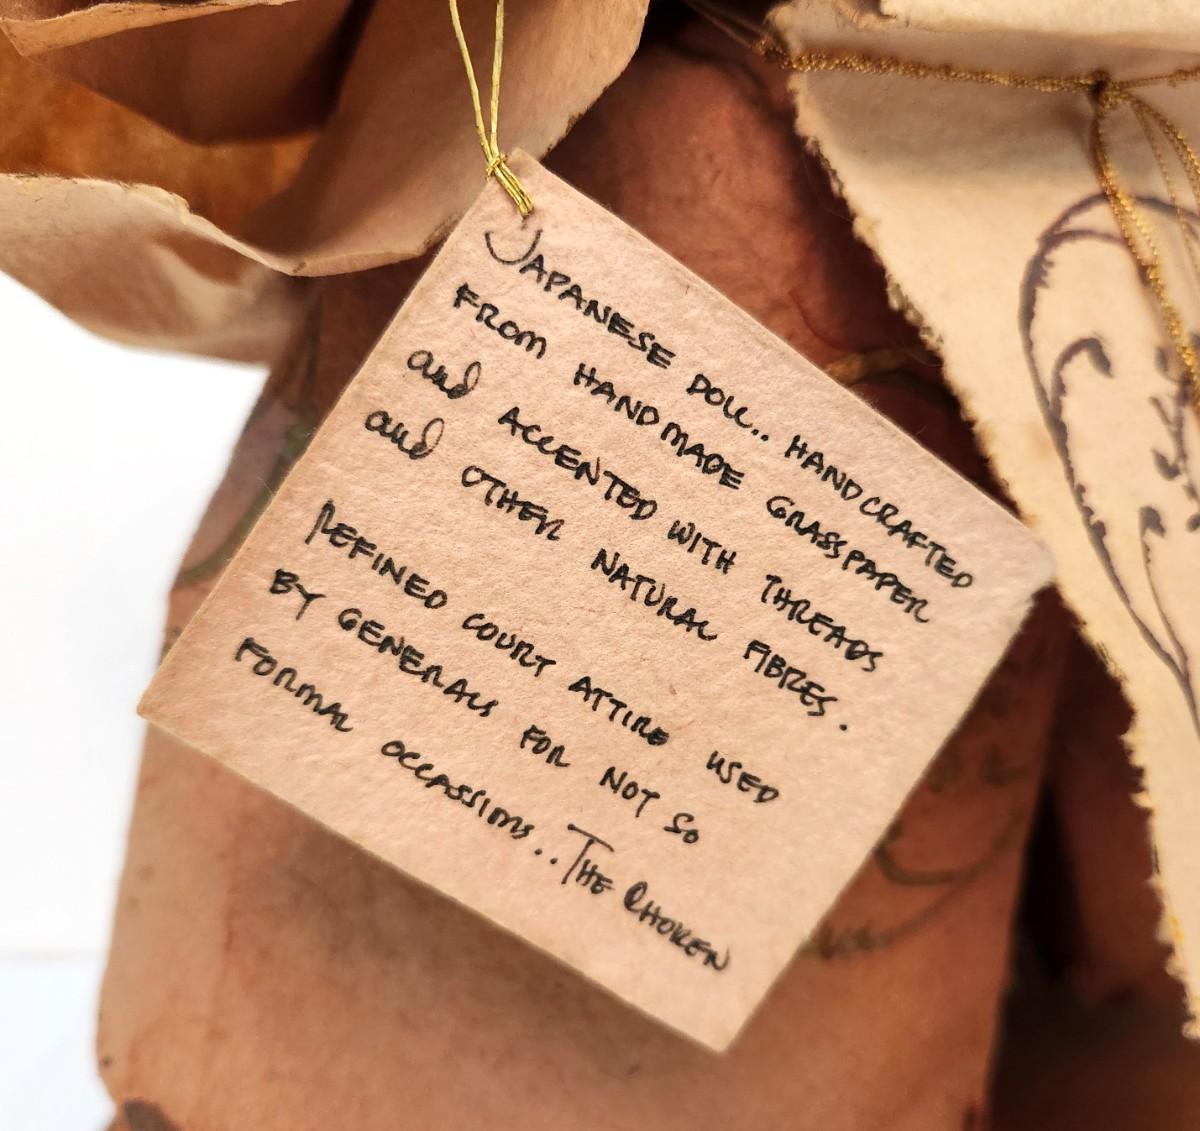 JAPANESE DOLL.. HANDCRAFTED
FROM HANDMADE GRASSPAPER
and ACCENTED WITH THREADS
and OTHER NATURAL FIBRES.
REFINED COURT ATTIRE USED
BY GENERALS FOR NOT SO
FORMAL OCCASSIONS.. THE CHOKEN